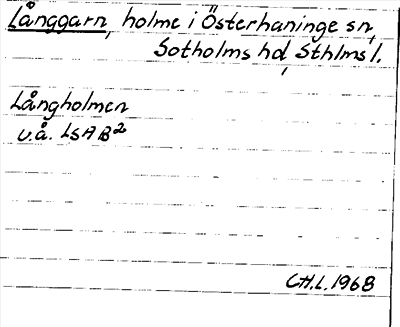 Långgarn, holme i Österhaninge sn,
Sotholms hd, Sthlms l.
Långholmen
u.å. LSA B2
CH.L. 1968